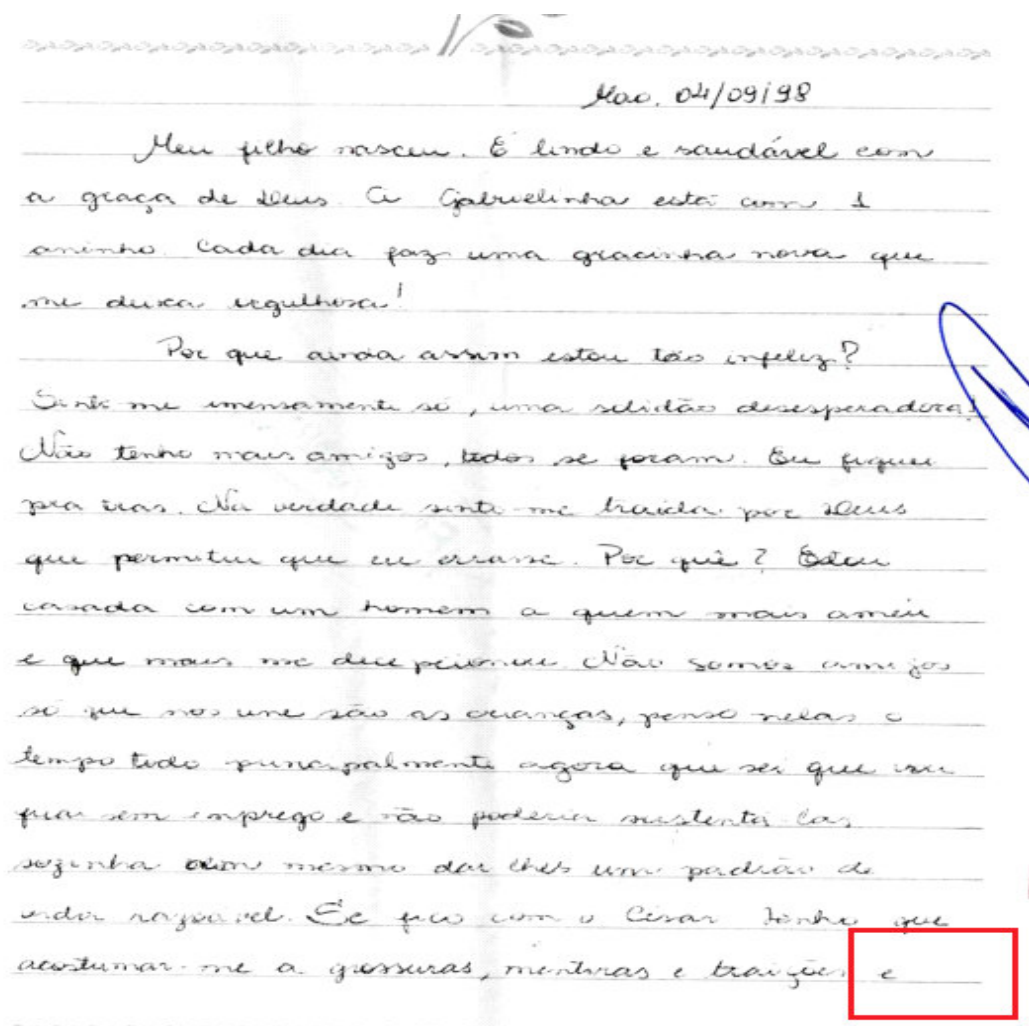 Mao. 04/09/98
Meu filho nasceu. É lindo e saudável com
a graça de Deus. A Gabrielinha está com 1
aninho. Cada dia faz uma gracinha nova que
me deixa orgulhosa!
Por que ainda assim estou tão infeliz?
Sinto-me imensamente só, uma solidão desesperadora!
Não tenho mais amigos, todos se foram. Eu fiquei
pra trás. Na verdade sinto-me traída por Deus
que permitiu que eu errasse. Por quê? Estou
casada com um homem a quem mais amei
e que mais me decepcionou. Não somos amigos
só que nos une são as crianças, penso nelas o
tempo todo principalmente agora que sei que vou
ficar sem emprego e não poderia sustentá-las
sozinha nem mesmo dar-lhes um padrão de
vida razoável. Se fico com o César tenho que
acostumar-me a grossuras, mentiras e traições e